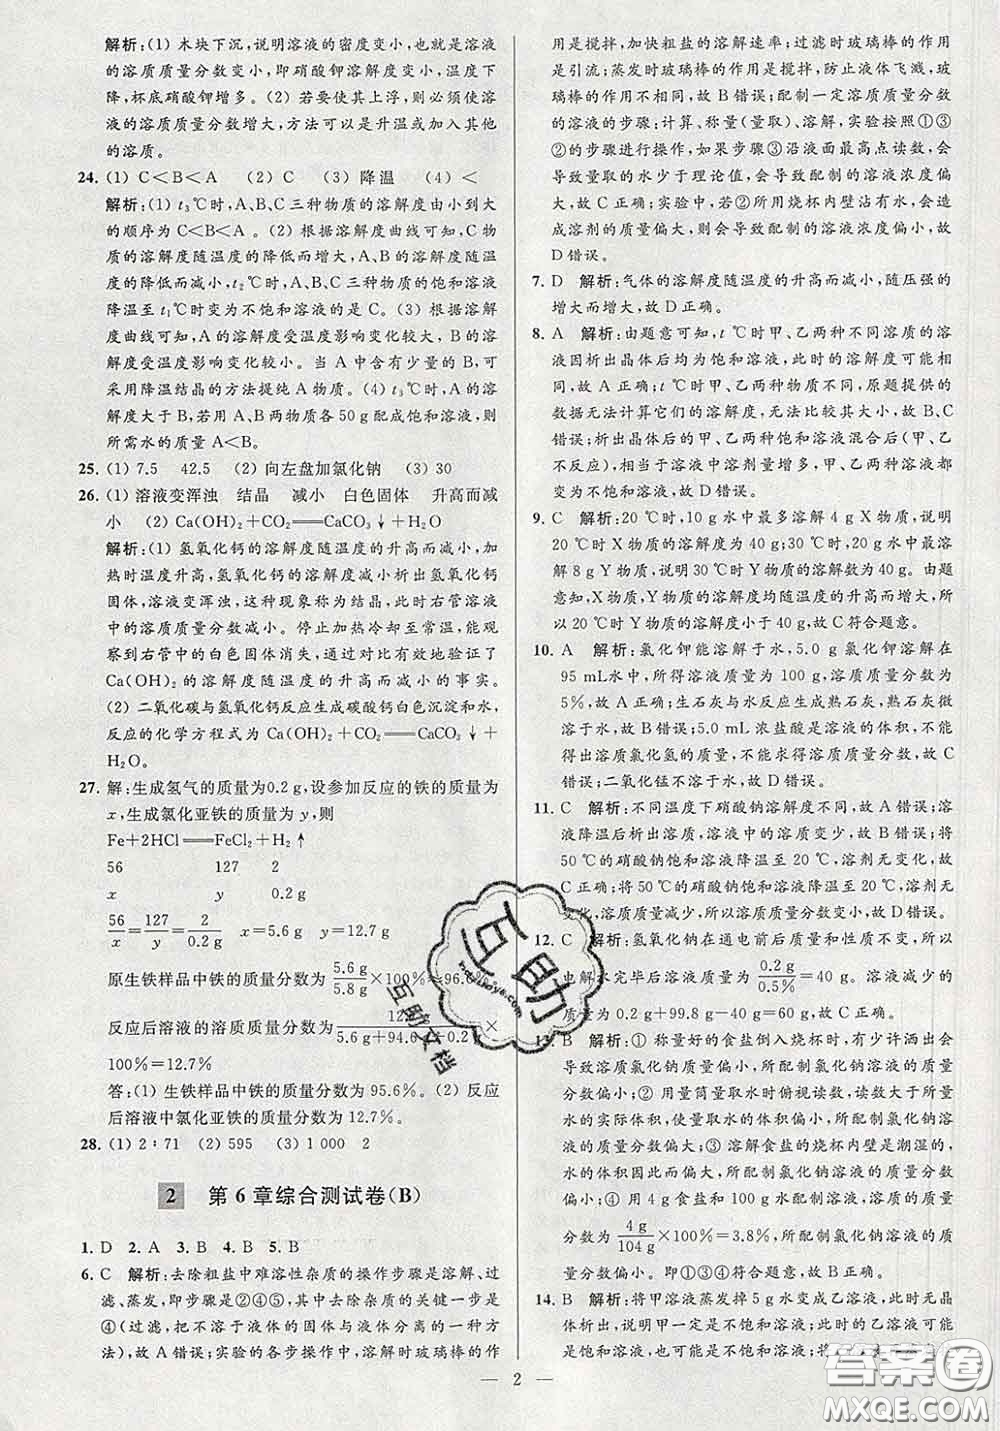 解析:(1) 木块下沉,说明溶液的密度变小,也就是溶液
的溶质质量分数变小,即硝酸钾溶解度变小,温度下
降,杯底硝酸钾增多。(2) 若要使其上浮,则必须使溶
液的溶质质量分数增大,方法可以是升温或加入其他
的溶质。
24. (1) C<B<A (2) C (3) 降温 (4) <
解析:(1) t₃℃时,A、B、C三种物质的溶解度由小到大
的顺序为 C<B<A。(2) 根据溶解度曲线可知,C物
质的溶解度随温度的降低而增大,A、B的溶解度随温度
的降低而减小,t₂℃时,A、B、C三种物质的饱和溶液
降温至t₁℃时变为不饱和溶液的是C。(3) 根据溶解
度曲线可知,A的溶解度受温度影响变化较大,B的溶
解度受温度影响变化较小。当A中含有少量的B,可
采用降温结晶的方法提纯A物质。(4) t₃℃时,A的溶
解度大于B,若用A、B两物质各50 g配成饱和溶液,则
所需水的质量A<B。
25. (1) 7.5 42.5 (2) 向左盘加氯化钠 (3) 30
26. (1) 溶液变浑浊 结晶 减小 白色固体 升高而减
小 (2) Ca(OH)₂+CO₂══CaCO₃↓+H₂O
解析:(1) 氢氧化钙的溶解度随温度的升高而减小,加
热时温度升高,氢氧化钙的溶解度减小析出氢氧化钙
固体,溶液变浑浊,这种现象称为结晶,此时右管溶液
中的溶质质量分数减小。停止加热冷却至常温,能观
察到右管中的白色固体消失,通过对比有效地验证了
Ca(OH)₂的溶解度随温度的升高而减小的事实。
(2) 二氧化碳与氢氧化钙反应生成碳酸钙白色沉淀和水,
反应的化学方程式为Ca(OH)₂+CO₂══CaCO₃↓+
H₂O。
27. 解:生成氢气的质量为0.2 g,设参加反应的铁的质量为
x,生成氯化亚铁的质量为y,则
Fe+2HCl══FeCl₂+H₂↑
56 127 2
x y 0.2 g
56/x=127/y=2/0.2 g x=5.6 g y=12.7 g
原生铁样品中铁的质量分数为5.6 g/5.8 g×100%=96.6%
反应后溶液的溶质质量分数为12./5.6 g+94.6-0.2 g×
100%=12.7%
答:(1) 生铁样品中铁的质量分数为95.6%。(2) 反应
后溶液中氯化亚铁的质量分数为12.7%。
28. (1) 2∶71 (2) 595 (3) 1 000 2
2 第6章综合测试卷(B)
1. D 2. A 3. B 4. B 5. B
6. C 解析:去除粗盐中难溶性杂质的操作步骤是溶解、过
滤、蒸发,即步骤是②④⑤,其中去除杂质的关键一步是
④(过滤,把不溶于液体的固体与液体分离的一种方
法),故A错误;实验的各步操作中,溶解时玻璃棒的作
用是搅拌,加快粗盐的溶解速率;过滤时玻璃棒的作用
是引流;蒸发时玻璃棒的作用是搅拌,防止液体飞溅,玻
璃棒的作用不相同,故B错误;配制一定溶质质量分数
的溶液的步骤:计算、称量(量取)、溶解,实验按照①③
②的步骤进行操作,如果步骤③沿液面最高点读数,会
导致量取的水少于理论值,会导致配制的溶液浓度偏
大,故C正确;实验中,若②所用烧杯内壁沾有水,会造
成溶剂的质量偏大,则会导致配制的溶液浓度偏小,故
D错误。
7. D 解析:气体的溶解度随温度的升高而减小,随压强的
增大而增大,故D正确。
8. A 解析:由题意可知,t ℃时甲、乙两种不同溶质的溶
液因析出晶体后均为饱和溶液,此时的溶解度可能相
同,故A正确;t ℃时甲、乙两种物质不同,原题提供的
数据无法计算它们的溶解度,无法比较其大小,故B、C
错误;析出晶体后的甲、乙两种饱和溶液混合后(甲、乙
不反应),相当于溶液中溶剂量增多,故混合后的溶液应
变为不饱和溶液,故D错误。
9. C 解析:20 ℃时,10 g水中最多溶解4 g X物质,说明
20 ℃时X物质的溶解度为40 g;30 ℃时,20 g水中最溶
解8 g Y物质,说明30 ℃时Y物质的溶解数为40 g。由题
意可知,X物质、Y物质的溶解度均随温度的升高而增大,
所以20 ℃时Y物质的溶解度小于40 g,故C符合题意。
10. A 解析:氯化钾能溶解于水,5.0 g氯化钾溶解在
95 mL水中,所得溶液质量为100 g,溶质质量分数为
5%,故A正确;生石灰与水反应生成熟石灰,熟石灰微
溶于水,故B错误;5.0 mL浓盐酸是溶液的体积,不能
得出溶质氯化氢的质量,不能求得溶质质量分数,故C
错误;二氧化锰不溶于水,故D错误。
11. C 解析:不同温度下硝酸钠溶解度不同,故A错误;溶
液降温后析出溶质,溶液中的溶质变少,故B错误;将
50 ℃的硝酸钠饱和溶液降温至20 ℃,溶剂无变化,故
C正确;将50 ℃的硝酸钠饱和溶液降温至20 ℃,溶剂无
变化,溶质质量减少,所以溶液质量变小,故D错误。
12. C 解析:氢氧化钠在通电前后质量和性质不变,所以
电解水完毕后溶液质量为0.2 g/0.5%=40 g。溶液减少的
质量为0.2 g+99.8 g-40 g=60 g,故C正确。
13. B 解析:① 称量好的食盐倒入烧杯时,有少许洒出会
导致溶质氯化钠质量偏小;② 用量筒量取水时俯视读数,量取
的水的实际体积,使量取水的体积偏小,所配制氯化钠溶
液的质量分数偏大;③ 溶解食盐的烧杯内壁是潮湿的,
水的体积因此而变大,所配制氯化钠溶液的质量分数
偏小;④ 用4 g食盐和100 g水配制,氯化钠溶液的质量分
数为4 g/104 g×100%=3.8%,所配制氯化钠溶液的质量分
数偏小;即①③④符合题意,故B正确。
14. B 解析:将甲溶液蒸发掉5 g水变成乙溶液,此时无晶
体析出,说明甲一定是不饱和溶液;此时的乙溶液可能
是饱和溶液,也可能是不饱和溶液;
— 2 —
互助
互助文档
答案圈
MXQE.COM